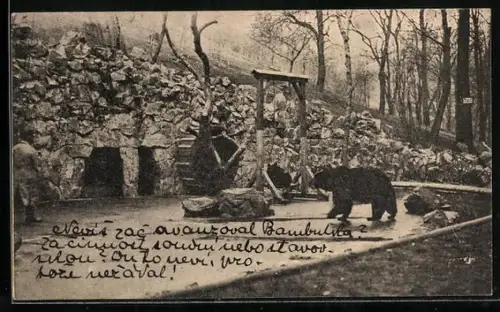 Nevíš zač avanzoval Bambulka?
Za činnost soudní nebo stavov-
skou? On to neví, pro-
tože nežával!